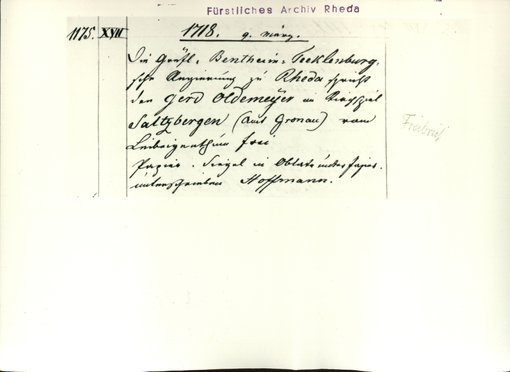 Fürstliches Archiv Rheda
1175. XVII 1718. 9. März.
Die Gräfl. Bentheim-Tecklenburg-
sche Regierung zu Rheda spricht
den Gerd Oldemeyer im Kirchspiel
Saltzbergen (Amt Gronau) vom
Leibeigenthum frei
Papier. Siegel in Oblate unter Papier.
unterschrieben Hoffmann.
Freibrief